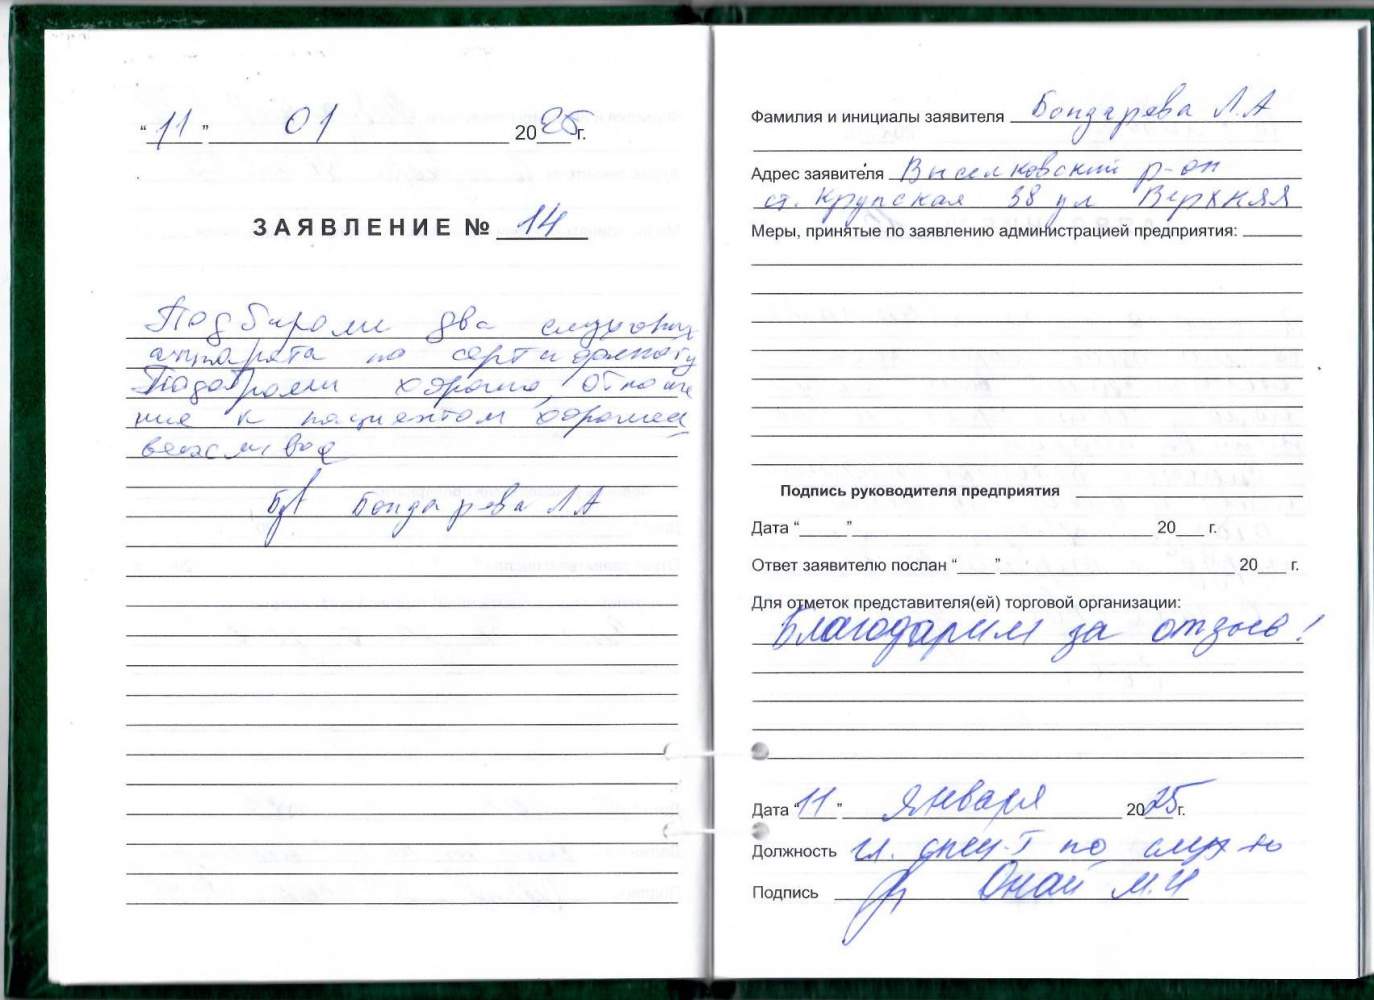 “11” 01 2025 г.
ЗАЯВЛЕНИЕ № 14
Подбирали два слуховых
аппарата по сертификату
Подобрали хорошо, отноше
ние к пациентам хорошее
вежливое
Бондарева Л А
Фамилия и инициалы заявителя Бондарева Л.А
Адрес заявителя Выселковский р-он
ст. Крупская 38 ул Верхняя
Меры, принятые по заявлению администрацией предприятия:
Подпись руководителя предприятия
Дата “ ” 20 г.
Ответ заявителю послан “ ” 20 г.
Для отметок представителя(ей) торговой организации:
Благодарим за отзыв!
Дата “11” января 2025 г.
Должность гл. спец-т по слуху
Подпись Онай М.И